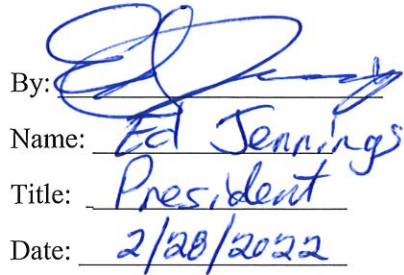 By:
Name: Ed Jennings
Title: President
Date: 2/28/2022